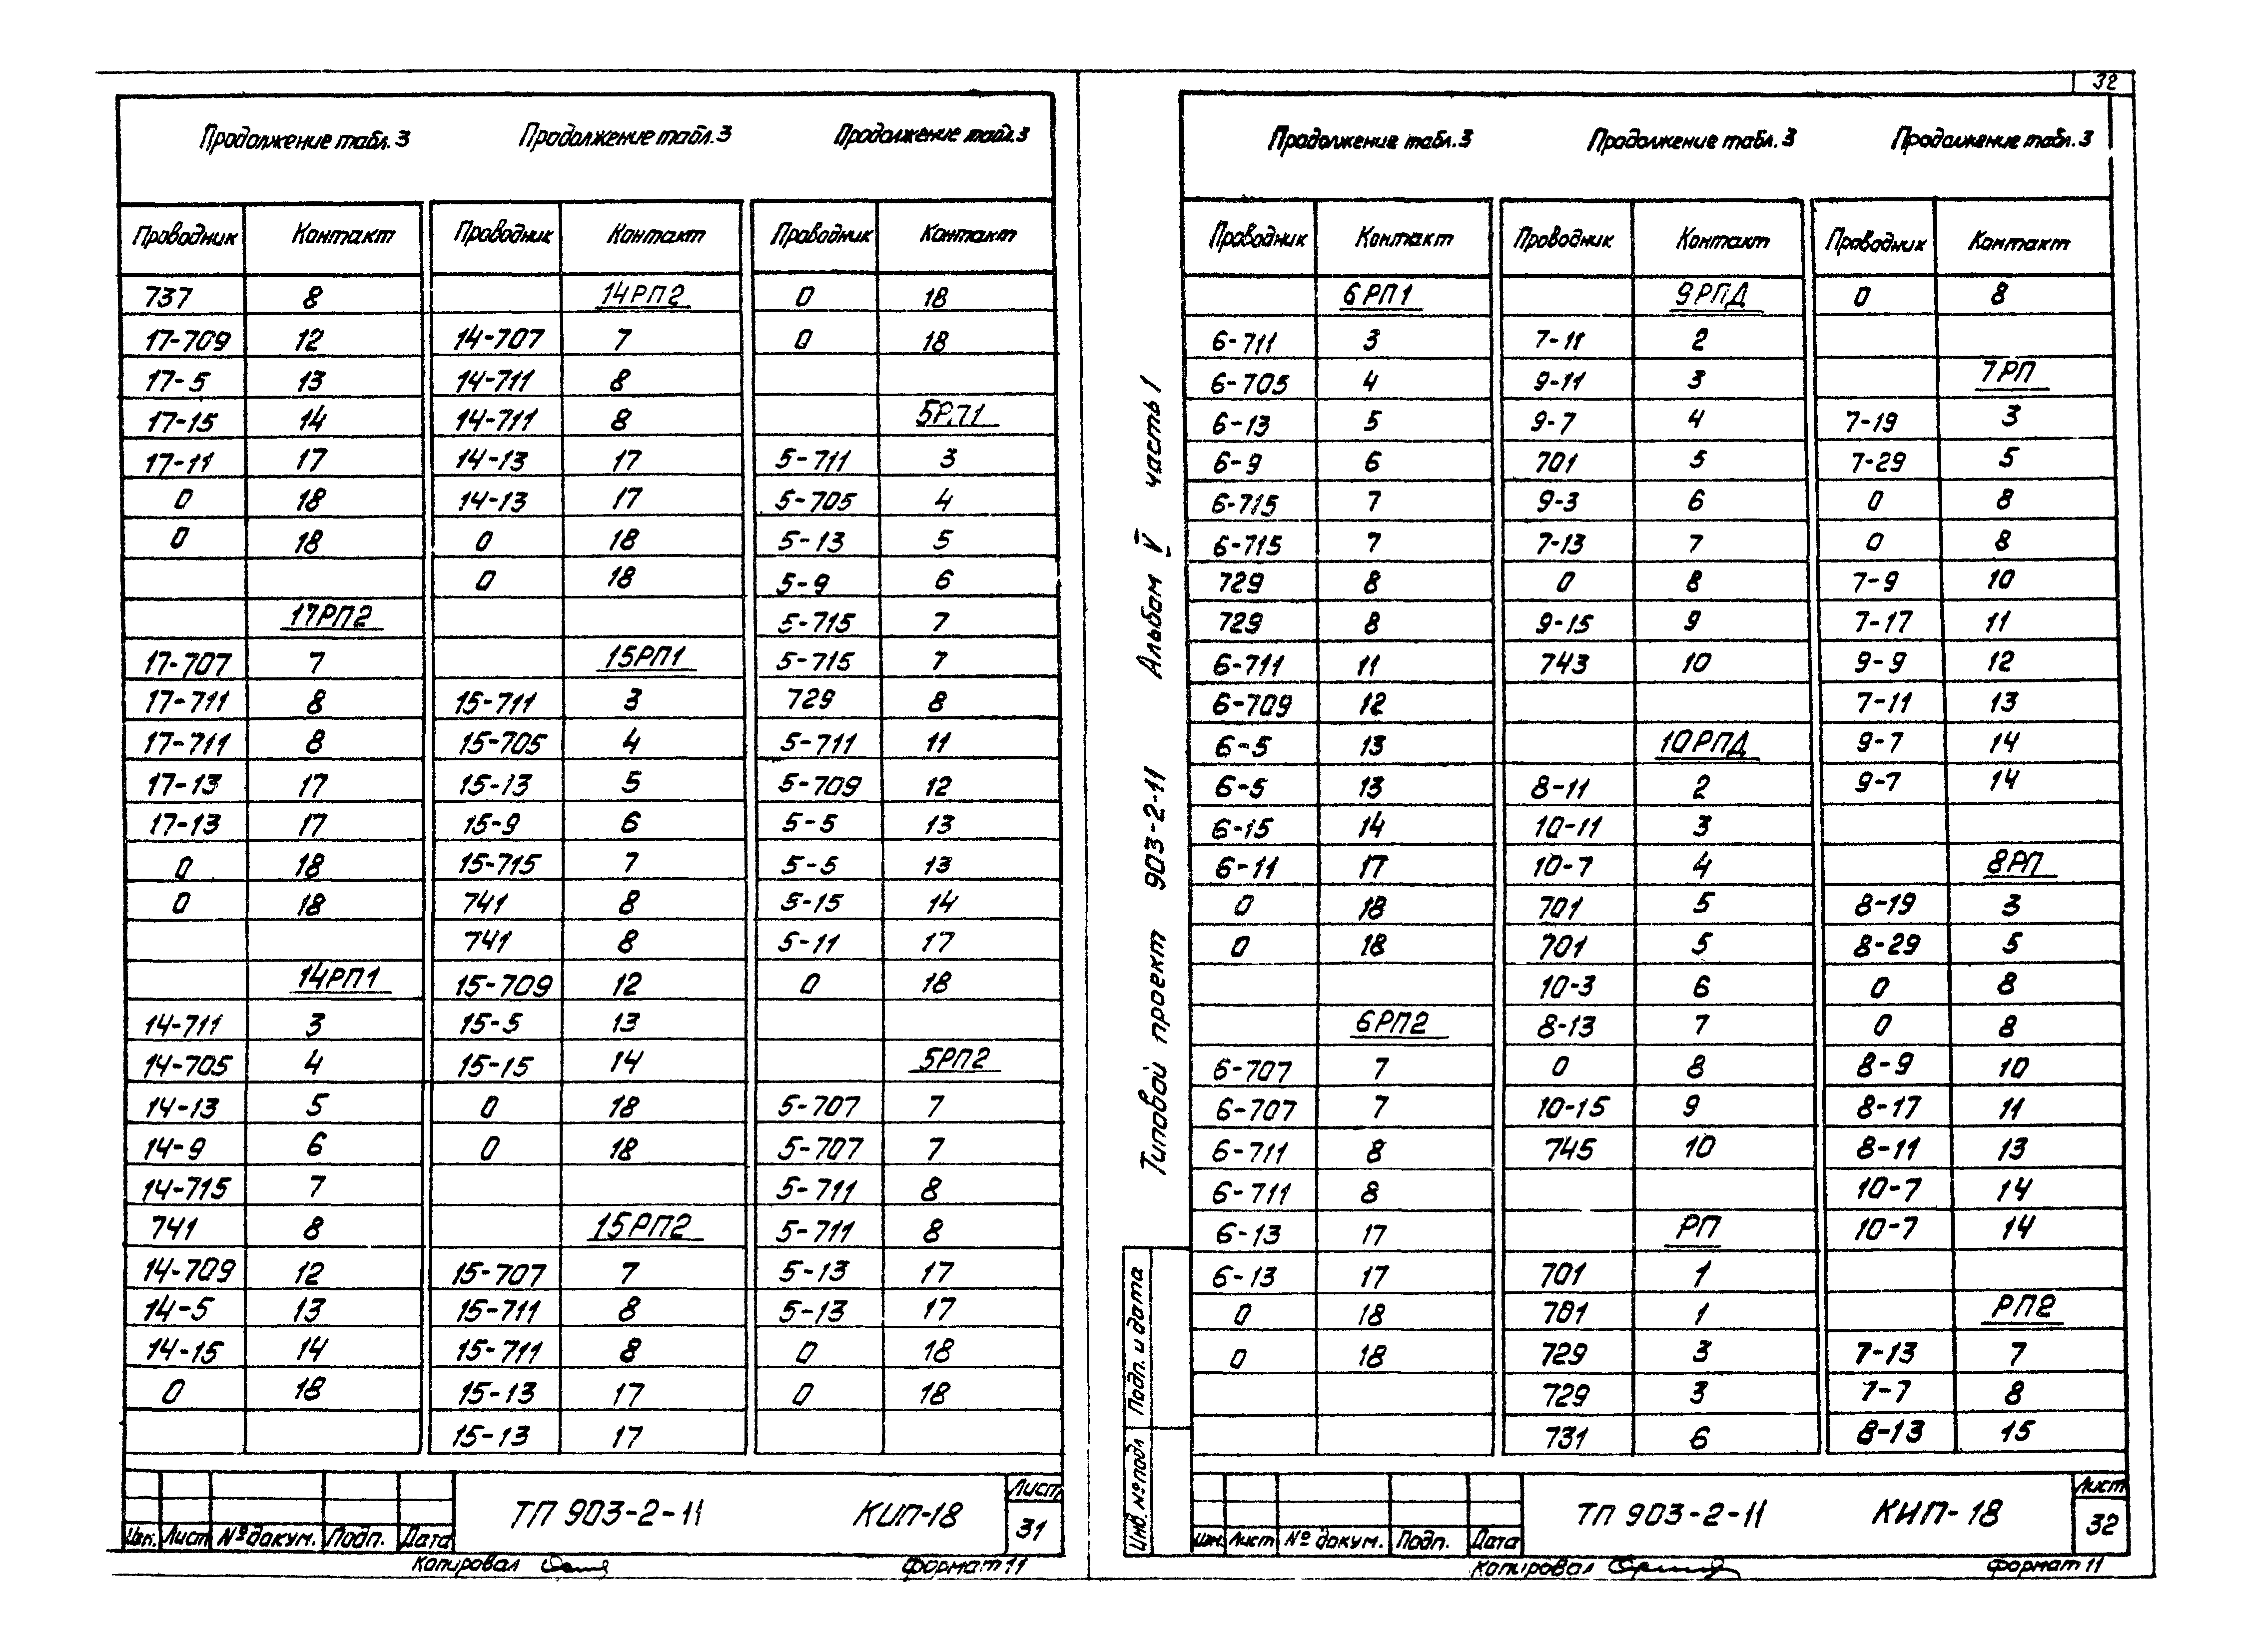 32
Продолжение табл.3
Проводник Контакт
737 8
17-709 12
17-5 13
17-15 14
17-11 17
0 18
0 18
17РП2
17-707 7
17-711 8
17-711 8
17-13 17
17-13 17
0 18
0 18
14РП1
14-711 3
14-705 4
14-13 5
14-9 6
14-715 7
741 8
14-709 12
14-5 13
14-15 14
0 18
Продолжение табл.3
Проводник Контакт
14РП2
14-707 7
14-711 8
14-711 8
14-13 17
14-13 17
0 18
0 18
15РП1
15-711 3
15-705 4
15-13 5
15-9 6
15-715 7
741 8
741 8
15-709 12
15-5 13
15-15 14
0 18
0 18
15РП2
15-707 7
15-711 8
15-711 8
15-13 17
15-13 17
Продолжение табл.3
Проводник Контакт
0 18
0 18
5РП1
5-711 3
5-705 4
5-13 5
5-9 6
5-715 7
5-715 7
729 8
5-711 11
5-709 12
5-5 13
5-5 13
5-15 14
5-11 17
0 18
5РП2
5-707 7
5-707 7
5-711 8
5-711 8
5-13 17
5-13 17
0 18
0 18
Изм. Лист № докум. Подп. Дата
ТП 903-2-11 КИП-18
Лист
31
Копировал
Формат 11
Типовой проект 903-2-11 Альбом V часть 1
Подп. и дата
Инв. № подл
Продолжение табл.3
Проводник Контакт
6РП1
6-711 3
6-705 4
6-13 5
6-9 6
6-715 7
6-715 7
729 8
729 8
6-711 11
6-709 12
6-5 13
6-5 13
6-15 14
6-11 17
0 18
0 18
6РП2
6-707 7
6-707 7
6-711 8
6-711 8
6-13 17
6-13 17
0 18
0 18
Продолжение табл.3
Проводник Контакт
9РПД
7-11 2
9-11 3
9-7 4
701 5
9-3 6
7-13 7
0 8
9-15 9
743 10
10РПД
8-11 2
10-11 3
10-7 4
701 5
701 5
10-3 6
8-13 7
0 8
10-15 9
745 10
РП
701 1
701 1
729 3
729 3
731 6
Продолжение табл.3
Проводник Контакт
0 8
7РП
7-19 3
7-29 5
0 8
0 8
7-9 10
7-17 11
9-9 12
7-11 13
9-7 14
9-7 14
8РП
8-19 3
8-29 5
0 8
0 8
8-9 10
8-17 11
8-11 13
10-7 14
10-7 14
РП2
7-13 7
7-7 8
8-13 15
Изм. Лист № докум. Подп. Дата
ТП 903-2-11 КИП-18
Лист
32
Копировал
Формат 11